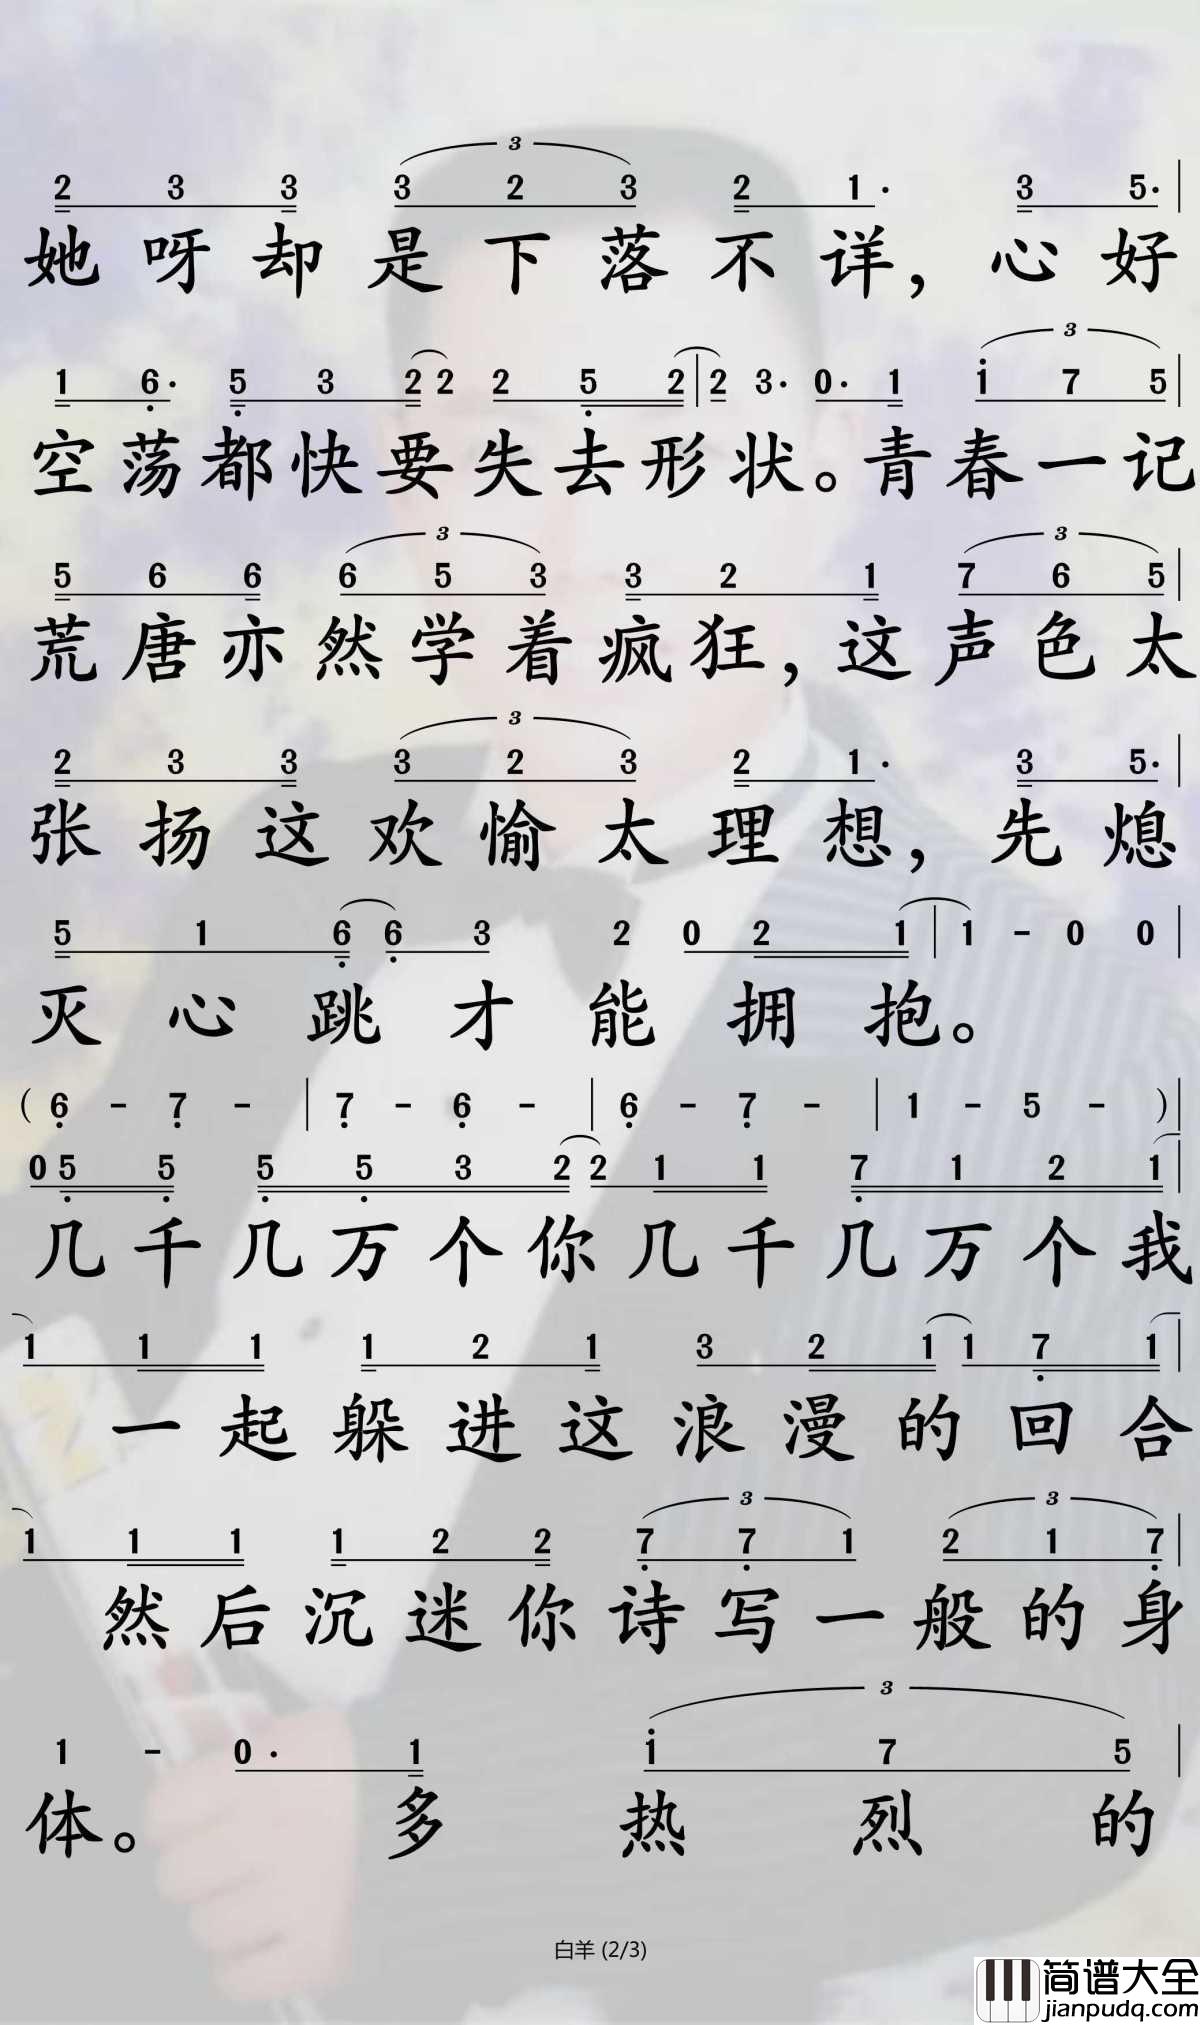 3
2 3 3 3 2 3 2 1· 3 5·
她呀却是下落不详，心好
3
1 6· 5 3 2 2 2 5 2 2 3· 0· 1 1 7 5
空荡都快要失去形状。青春一记
3 3
5 6 6 6 5 3 3 2 1 7 6 5
荒唐亦然学着疯狂，这声色太
3
2 3 3 3 2 3 2 1· 3 5·
张扬这欢愉太理想，先熄
5 1 6 6 3 2 0 2 1 1 - 0 0
灭心跳才能拥抱。
(6 - 7 - 7 - 6 - 6 - 7 - 1 - 5 - )
0 5 5 5 5 3 2 2 1 1 7 1 2 1
几千几万个你几千几万个我
1 1 1 1 2 1 3 2 1 1 7 1
一起躲进这浪漫的回合
3 3
1 1 1 1 2 2 7 7 1 2 1 7
然后沉迷你诗写一般的身
3
1 - 0· 1 1 7 5
体。多热烈的
白羊 (2/3)
简谱大全
jianpudq.com